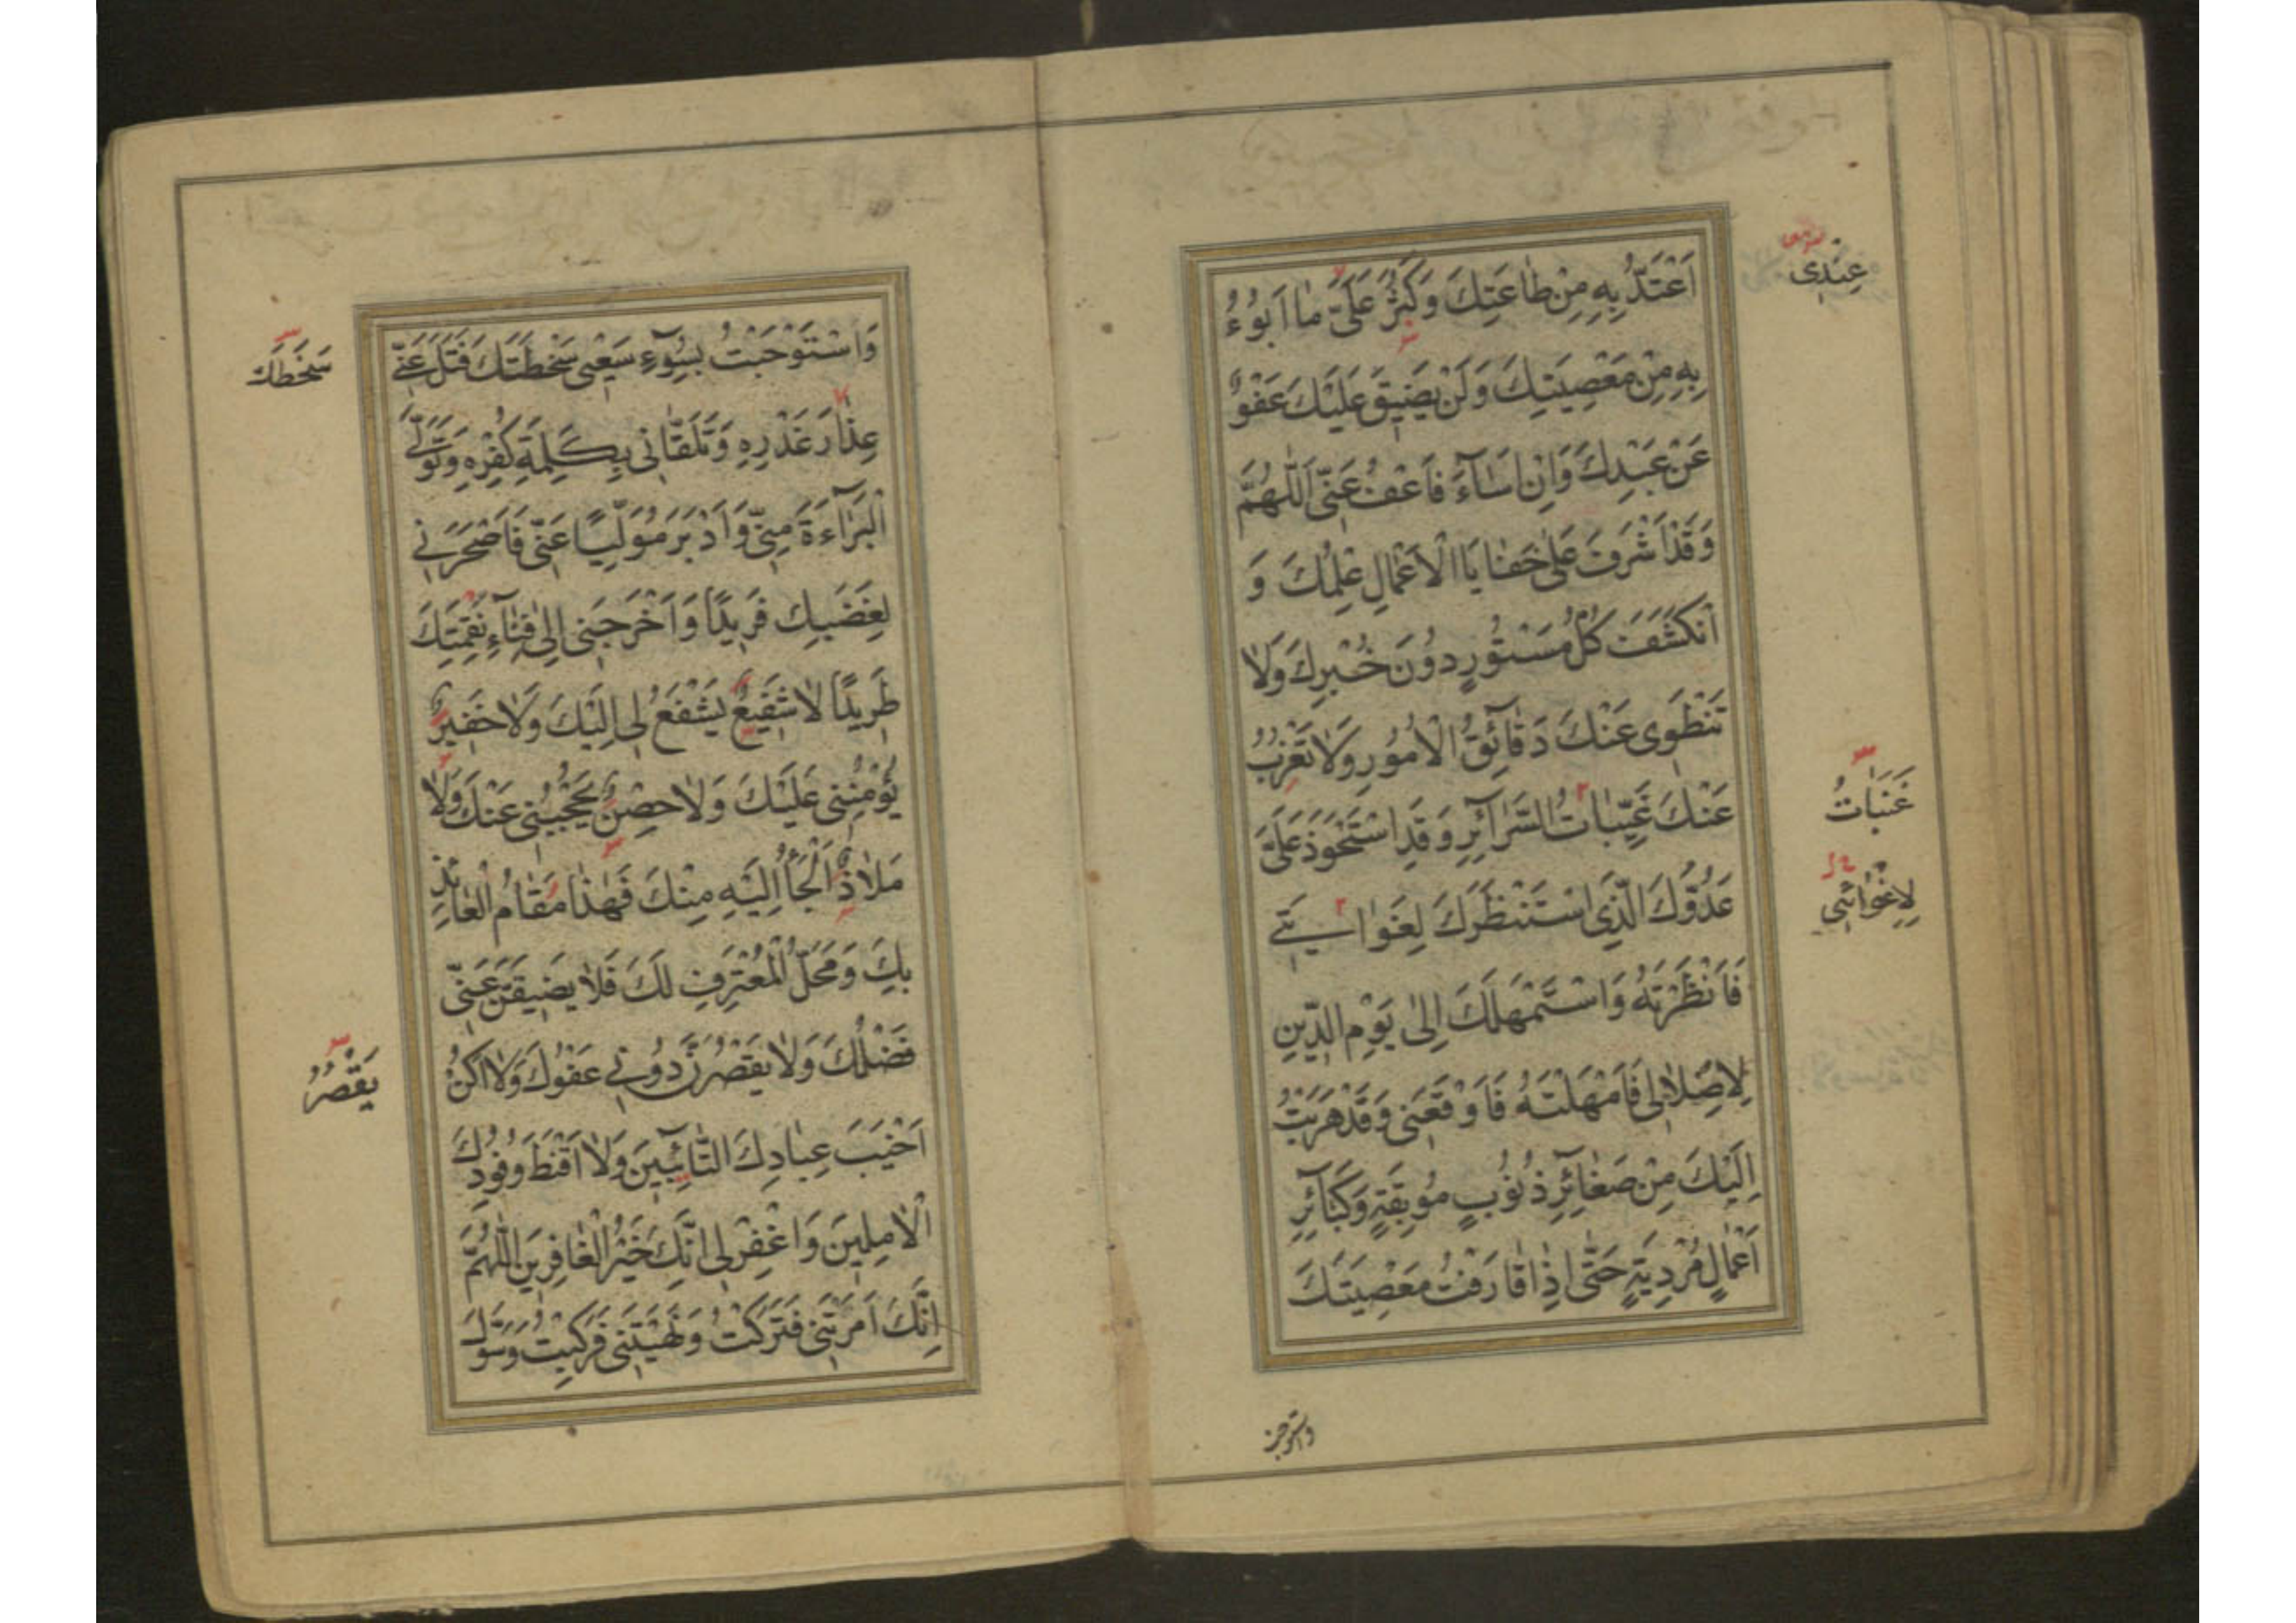 عِنْدِي
اَعْتَدُّ بِهِ مِنْ طَاعَتِكَ وَكَثُرَ عَلَيَّ مَا اَبُوءُ
بِهِ مِنْ مَعْصِيَتِكَ وَلَنْ يَضِيقَ عَلَيْكَ عَفْوٌ
عَنْ عَبْدِكَ وَاِنْ اَسَآءَ فَاعْفُ عَنِّي اَللّٰهُمَّ
وَقَدْ اَشْرَفَ عَلٰى خَفَايَا الْاَعْمَالِ عِلْمُكَ وَ
اَنْكَشَفَ كُلُّ مَسْتُورٍ دُونَ خُبْرِكَ وَلَا
تَنْطَوِي عَنْكَ دَقَآئِقُ الْاُمُورِ وَلَا تَعْزُبُ
عَنْكَ غَيِّبَاتُ السَّرَآئِرِ وَقَدِ اسْتَحْوَذَ عَلَيَّ
غَيَبَاتُ
عَدُوُّكَ الَّذِي اسْتَنْظَرَكَ لِغَوَايَتِي
لِاِغْوَائِي
فَاَنْظَرْتَهُ وَاسْتَمْهَلَكَ اِلٰى يَوْمِ الدِّينِ
لِاِضْلَالِي فَاَمْهَلْتَهُ فَاَوْقَعَنِي وَقَدْ هَرَبْتُ
اِلَيْكَ مِنْ صَغَآئِرِ ذُنُوبٍ مُوبِقَةٍ وَكَبَآئِرِ
اَعْمَالٍ مُرْدِيَةٍ حَتّٰى اِذَا قَارَفْتُ مَعْصِيَتَكَ
واستوجبت
وَاسْتَوْجَبْتُ بِسُوٓءِ سَعْيِي سَخْطَتَكَ فَتَلَ عَنِّي
سَخَطَكَ
عِذَارَ غَدْرِهِ وَتَلَقَّانِي بِكَلِمَةِ كُفْرِهِ وَتَوَلَّى
الْبَرَآءَةَ مِنِّي وَاَدْبَرَ مُوَلِّيًا عَنِّي فَاَصْحَرَنِي
لِغَضَبِكَ فَرِيدًا وَاَخْرَجَنِي اِلٰى فِنَآءِ نَقِمَتِكَ
طَرِيدًا لَا شَفِيعٌ يَشْفَعُ لِي اِلَيْكَ وَلَا خَفِيرٌ
يُؤْمِنُنِي عَلَيْكَ وَلَا حِصْنٌ يَحْجُبُنِي عَنْكَ وَلَا
مَلَاذٌ اَلْجَأُ اِلَيْهِ مِنْكَ فَهٰذَا مَقَامُ الْعَائِذِ
بِكَ وَمَحَلُّ الْمُعْتَرِفِ لَكَ فَلَا يَضِيقَنَّ عَنِّي
فَضْلُكَ وَلَا يَقْصُرَنَّ دُونِي عَفْوُكَ وَلَا اَكُنْ
يَقْصُرُ
اَخْيَبَ عِبَادِكَ التَّآئِبِينَ وَلَا اَقْنَطَ وُفُودِكَ
الْاٰمِلِينَ وَاغْفِرْ لِي اِنَّكَ خَيْرُ الْغَافِرِينَ اَللّٰهُمَّ
اِنَّكَ اَمَرْتَنِي فَتَرَكْتُ وَنَهَيْتَنِي فَرَكِبْتُ وَسَوَّلَ